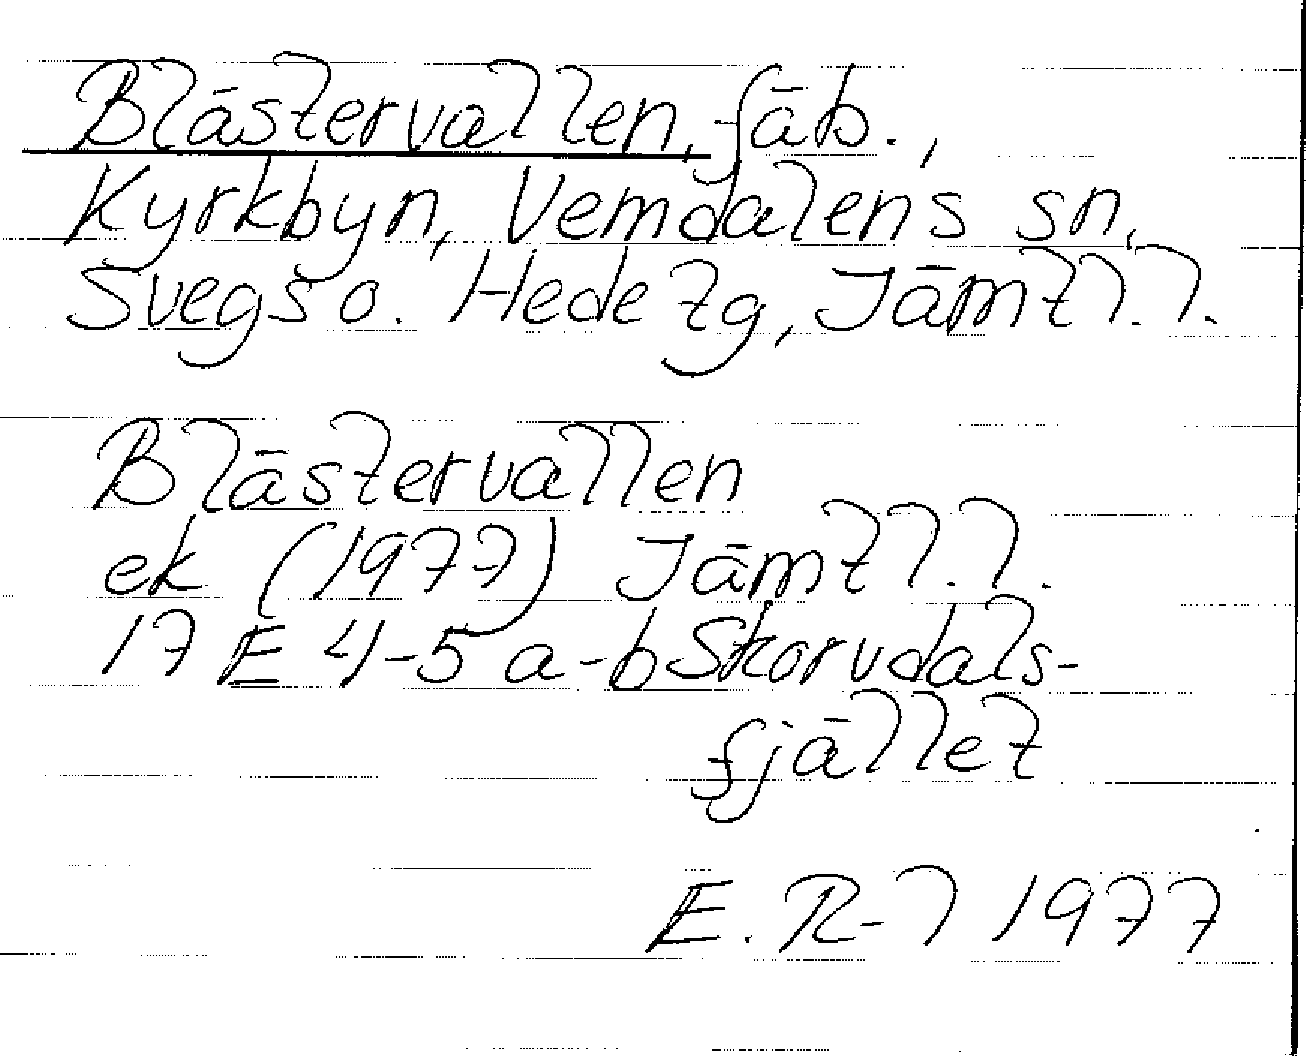 Blästervallen, fäb.,
Kyrkbyn, Vemdalens sn,
Svegs o. Hede tg, Jämtl.l.
Blästervallen
ek (1977) Jämtl.l.
17 E 4-5 a-b Skorvdals-
fjället
E. R-l 1977